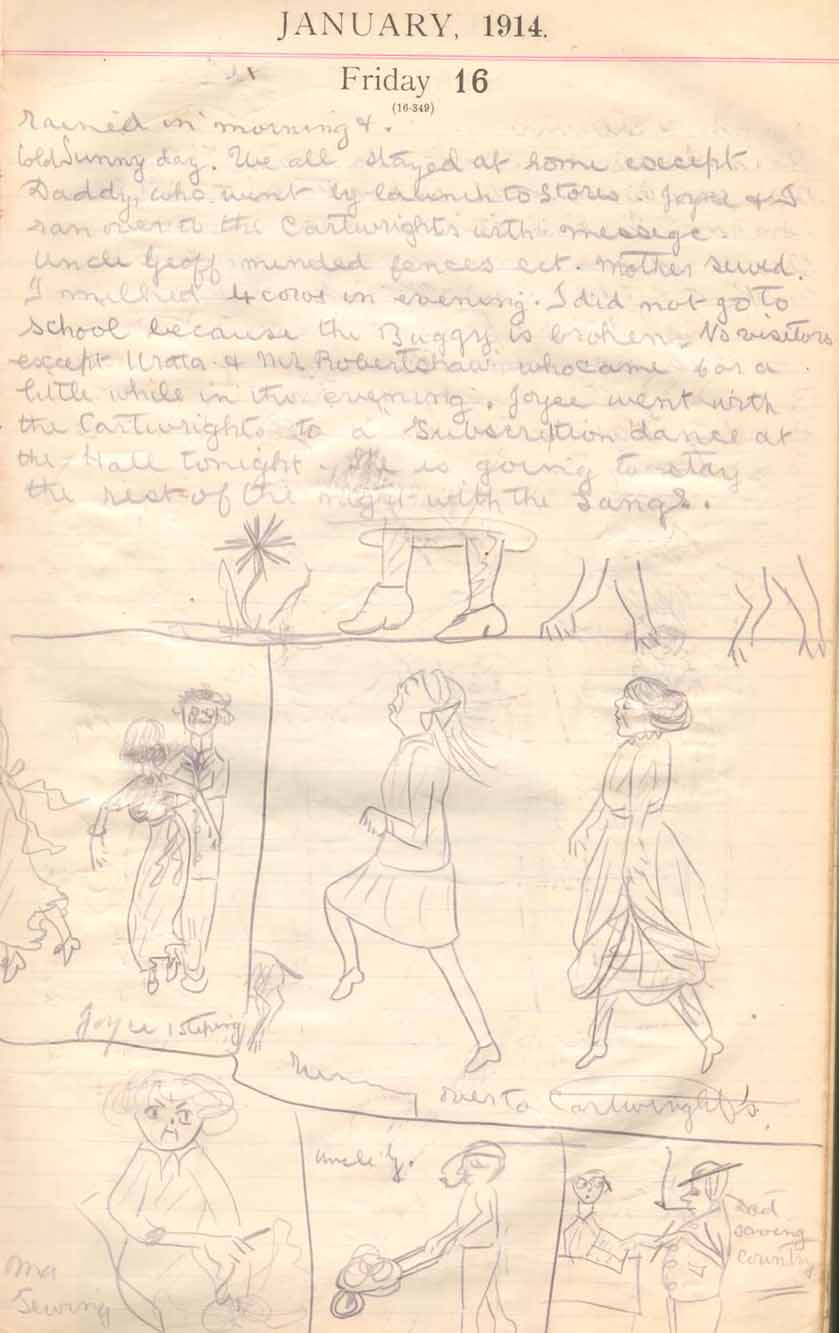 JANUARY, 1914.
Friday 16
(16-349)
rained in morning & .
Cold Sunny day. We all stayed at home except
Daddy, who went by launch to Stores. Joyce & I
ran over to the Cartwrights with messege.
Uncle Geoff minded fences ect. Mother sewed.
I milked 4 cows in evening. I did not go to
School because the Buggy is broken. No visitors
except & Mr Robertshaw who came for a
little while in the evening. Joyce went with
the Cartwrights to a Subscription dance at
the Hall tonight. She is going to stay
the rest of the night with the Sangs.
Joyce 1 steping
over to Cartwright's.
Uncle G.
Dad
saving
Country
Ma
Sewing